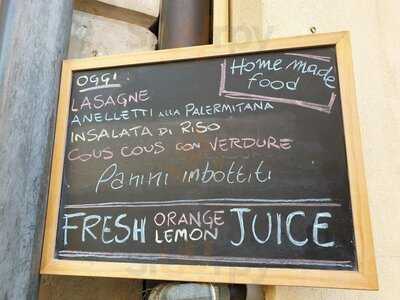 OGGI:
Home made
food
LASAGNE
ANELLETTI alla PALERMITANA
INSALATA DI RISO
COUS COUS CON VERDURE
Panini imbottiti
FRESH ORANGE LEMON JUICE